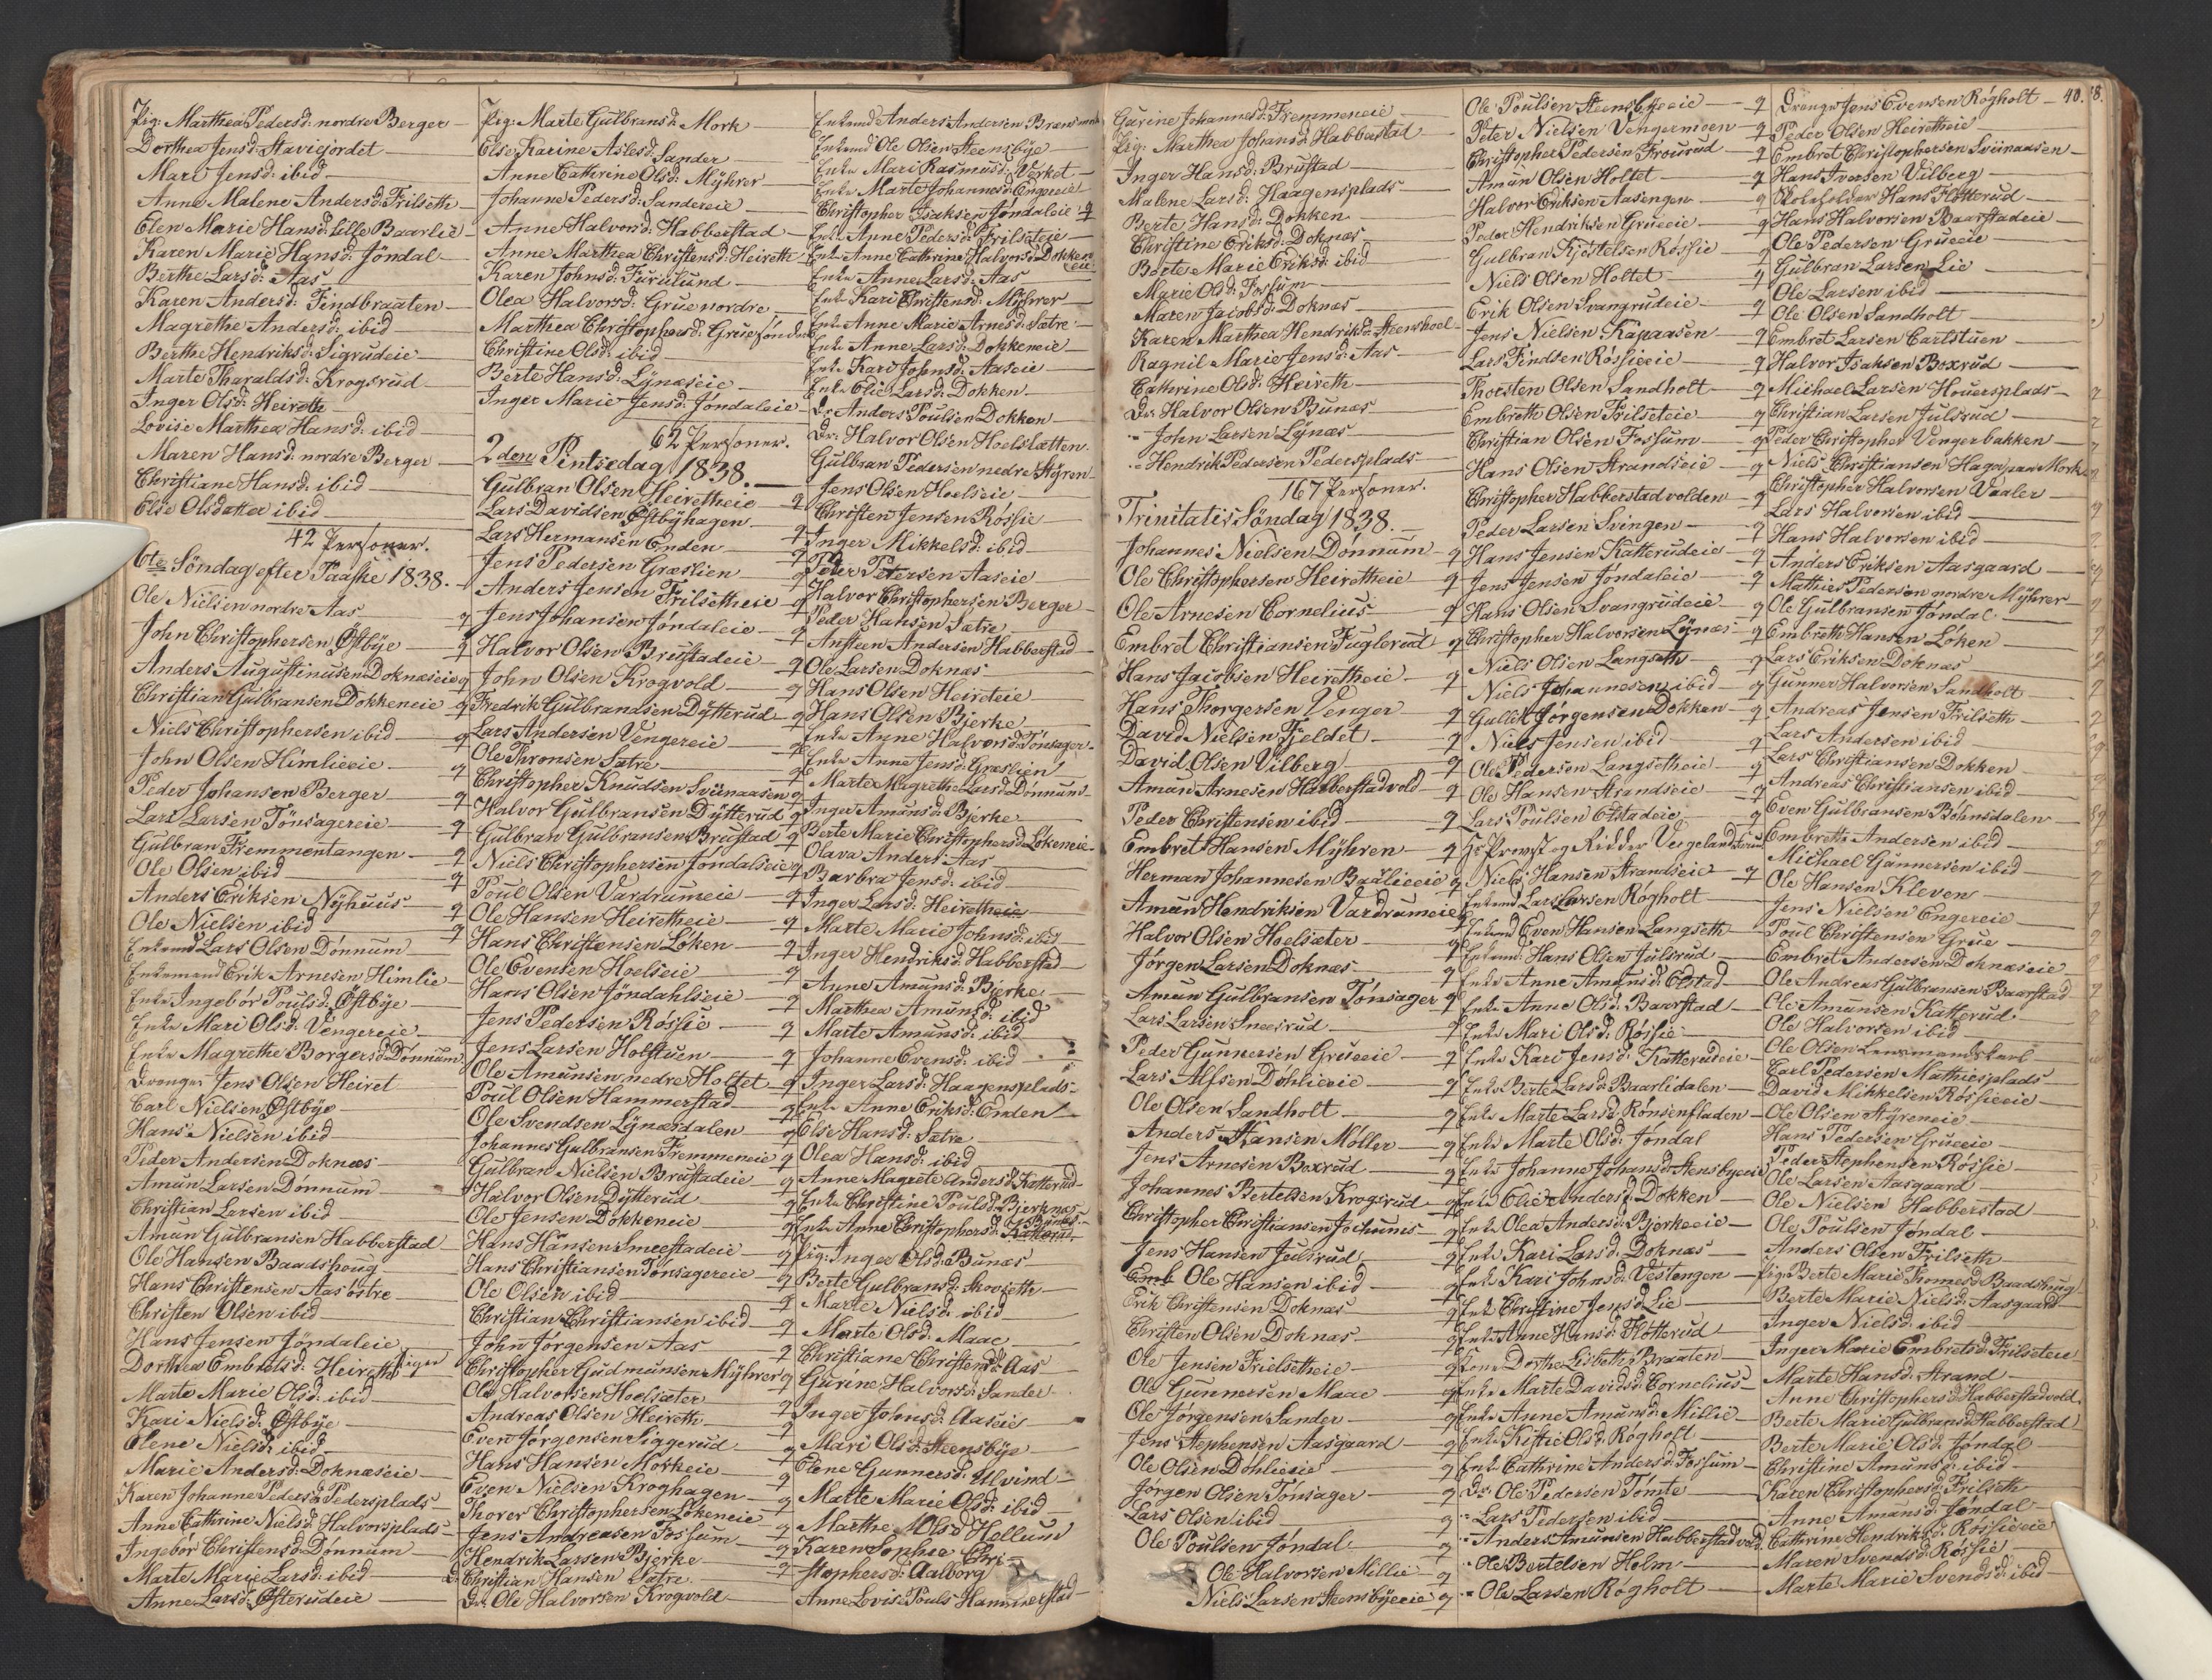 Pig: Marthea Pedersd: nordre Berger
Dorthea Jensd: Stavicjordet
Mari Jensd: ibid
Anne Malene Andersd: Frilseth
Elen Marie Hansd: lille Baarlie
Karen Marie Hansd: Jöndal
Berthe Larsd: Aas
Karen Andersd: Findbraaten
Magrethe Andersd: ibid
Berthe Hendriksd: Sigrudeie
Marte Tharaldsd: Krogsrud
Inger Olsd: Heireth
Lovise Marthea Hansd: ibid
Maren Hansd: nordre Berger
Christiane Hansd: ibid
Else Olsdatter ibid
42 Personer.
6te Söndag efter Paaske 1838.
Ole Nielsen nordre Aas
John Christophersen Östbye
Anders Augustinusen Doknæseie
Christian Gulbransen Dokkeneie
Niels Christophersen ibid
John Olsen Himlieeie
Peder Johansen Berger
Lars Larsen Tönsagereie
Gulbran Fremmentangen
Ole Olsen ibid
Anders Eriksen Nyhuus
Ole Nielsen ibid
Enkemd Lars Olsen Dönnum
Enkemand Erik Arnesen Himlie
Enke Ingebor Poulsd: Östbye
Enke Mari Olsd: Vengereie
Enke Magrethe Borgersd: Dönnum
Drenge: Jens Olsen Heiret
Carl Nielsen Östbye
Hans Nielsen ibid
Peder Andersen Doknæs
Amun Larsen Dönnum
Christian Larsen ibid
Amun Gulbransen Habberstad
Ole Hansen Baadshoug
Hans Christensen Aas östre
Christen Olsen ibid
Hans Jensen Jöndaleie
Dorthea Embretsd: Heireth Piger
Marte Marie Olsd: ibid
Kari Nielsd: Östbye
Olene Nielsd: ibid
Marie Andersd: Doknæseie
Karen Johanne Pedersd: Pedersplads
Anne Cathrine Nielsd: Halvorsplads
Ingebor Christensd: Dönnum
Marte Marie Larsd: ibid
Anne Larsd: Österudeie
Pig: Marte Gulbransd: Mork
Else Karine Aslesd: Sander
Anne Cathrine Olsd: Myhrer
Johanne Pedersd: Sandereie
Anne Halvorsd: Habberstad
Anne Marthea Christensd: Heireth
Karen Johnsd: Furulund
Olea Halvorsd: Grue nordre
Marthea Christophersd: Grue sönder
Christine Olsd: ibid
Berte Hansd: Lynæseie
Inger Marie Jensd: Jöndaleie
62 Personer.
2den Pintsedag 1838.
Gulbran Olsen Heiretheie
Lars Davidsen Östbyhagen
Lars Hermansen Enden
Jens Pedersen Græslien
Anders Jensen Frilsetheie
Jens Johansen Jöndaleie
Halvor Olsen Brustadeie
John Olsen Krogvold
Fredrik Gulbrandsen Dytterud
Lars Andersen Vengereie
Ole Thronsen Sætre
Christopher Knudsen Sviinaasen
Halvor Gulbransen Dytterud
Gulbran Gulbransen Brustad
Niels Christophersen Jöndalseie
Poul Olsen Vardrumeie
Ole Hansen Heiretheie
Hans Christensen Löken
Ole Evensen Hoelseie
Hans Olsen Jöndahlseie
Jens Pedersen Rössie
Jens Larsen Holstuen
Ole Amunsen nedre Holtet
Poul Olsen Hammerstad
Ole Svendsen Lynæsdalen
Johannes Gulbransen Fremmeneie
Gulbran Nielsen Brustadeie
Halvor Olsen Dytterud
Ole Jensen Dokkeneie
Hans Hansen Smeestadeie
Hans Christiansen Tönsagereie
Ole Olsen ibid
Christian Christiansen ibid
John Jörgensen Aas
Christopher Gudmunsen Myhrer
Ole Halvorsen Hoelsæter
Andreas Olsen Heireth
Even Jörgensen Siggerud
Hans Hansen Morkeie
Even Nielsen Kroghagen
Thorer Christophersen Lökeneie
Jens Andreasen Fossum
Hendrik Larsen Bjerke
Christian Hansen Sætre
Dr: Ole Halvorsen Krogvold
Enkemd Anders Andersen Brænmoe
Enkemd Ole Olsen Steensbye
Enke Mari Rasmusd: Verket
Enke Marte Johannesd: Engereie
Christopher Isaksen Jöndaleie
Enke Anne Pedersd: Frilseteie
Enke Anne Cathrine Halvorsd: Dokken eie
Enke Anne Larsd: Aas
Enke Kari Christensd: Myhrer
Enke Anne Marie Arnesd: Sætre
Enke Anne Larsd: Dokkeneie
Enke Kari Johnsd: Aaseie
Enke Olie Larsd: Dokken
Dr: Anders Poulsen Dokken
Dr: Halvor Olsen Hoelslætten
Gulbran Pedersen nedre Styren
Jens Olsen Hoelseie
Christen Jensen Rössie
Inger Mikkelsd: ibid
Peter Petersen Aaseie
Halvor Christophersen Berger
Peder Hansen Sætre
Ansteen Andersen Habberstad
Ole Larsen Doknæs
Hans Olsen Heireteie
Hans Olsen Bjerke
Enke Anne Halvorsd: Tönsager
Enke Anne Jensd: Græslien
Marte Magrethe Larsd: Dönnum
Inger Amunsd: Bjerke
Berte Marie Christophersd: Lökeneie
Olava Andersd: Aas
Barbra Jensd: ibid
Inger Larsd: Heiretheie
Marte Marie Johnsd: ibid
Inger Hendriksd: Habberstad
Anne Amunsd: Bjerke
Marthea Amunsd: ibid
Marte Amunsd: ibid
Johanne Evensd: ibid
Inger Larsd: Haagensplads
Enke Anne Eriksd: Enden
Else Hansd: Sætre
Olea Hansd: ibid
Anne Magrete Andersd: Katterud
Enke Christine Poulsd: Bjerknæs
Enke Anne Christophersd: Bunæs
Pig: Inger Olsd: Bunæs
Berte Gulbransd: Skovseth
Marte Nielsd: ibid
Marte Olsd: Maae
Christiane Christensd: Aas
Gurine Halvorsd: Sander
Inger Johnsd: Aaseie
Mari Olsd: Steensbye
Elene Gunnersd: Ulvind
Marte Marie Olsd: ibid
Marthe Olsd: Hellum
Karen Sophie Chri-
stophersd: Aalborg
Anne Lovise Pouls Hammerstad
Gurine Johannesd: Fremmeneie
Pig: Marthea Johansd: Habberstad
Inger Hansd: Brustad
Malene Larsd: Haagensplads
Berte Hansd: Dokken
Christine Eriksd: Doknæs
Berte Marie Eriksd: ibid
Marie Olsd: Fossum
Maren Jacobsd: Doknæs
Karen Marthea Hendriksd: Steenshoel
Ragnil Marie Jensd: Aas
Cathrine Olsd: Heireth
Dr: Halvor Olsen Bunæs
" John Larsen Lynæs
" Hendrik Pedersen Pedersplads
167 Personer.
Trinitatis Söndag 1838.
Johannes Nielsen Dönnum
Ole Christophersen Heiretheie
Ole Arnesen Cornelius
Embret Christiansen Fuglerud
Hans Jacobsen Heiretheie
Hans Thorgersen Venger
David Nielsen Fjeldet
David Olsen Vilberg
Amun Arnesen Habberstadvold
Peder Christensen ibid
Embret Hansen Myhren
Herman Johannesen Baarlieeie
Amun Hendriksen Vardrumeie
Halvor Olsen Hoelsæter
Jörgen Larsen Doknæs
Amun Gulbransen Tönsager
Lars Larsen Sneesrud
Peder Gunnersen Grueeie
Lars Alfsen Döhlieeie
Ole Olsen Sandholt
Anders Hansen Möller
Jens Arnesen Boxrud
Johannes Bertelsen Krogsrud
Christopher Christiansen Jochums
Jens Hansen Julsrud
Emb Ole Hansen ibid
Erik Christensen Doknæs
Christen Olsen Doknæs
Ole Jensen Frielsetheie
Ole Gunnersen Maae
Ole Jörgensen Sander
Jens Stephensen Aasgaard
Ole Olsen Döhlieeie
Jörgen Olsen Tönsager
Lars Olsen ibid
Ole Poulsen Jöndal
Ole Halvorsen Millie
Niels Larsen Steensbyeeie
Ole Poulsen Steensbyeeie
Peter Nielsen Vengermoen
Christopher Pedersen Frourud
Amun Olsen Holtet
Halvor Eriksen Aasengen
Peder Hendriksen Grueeie
Gulbran Kjöstelsen Rössie
Niels Olsen Holtet
Erik Olsen Svangrudeie
Jens Nielsen Kapaasen
Lars Findsen Rössieeie
Thorsten Olsen Sandholt
Embreth Olsen Frilseteie
Christian Olsen Fossum
Hans Olsen Strandseie
Christopher Habberstadvolden
Peder Larsen Svingen
Hans Jensen Katterudeie
Jens Jensen Jöndaleie
Hans Olsen Svangrudeie
Christopher Halvorsen Lynæs
Niels Olsen Langseth
Niels Johannesen ibid
Gullik Jörgensen Dokken
Niels Jensen ibid
Ole Pedersen Langsetheie
Ole Hansen Strandseie
Lars Poulsen Olstadeie
Hr Provst og Ridder Vergeland
Niels Hansen Strandseie
Enkemd Lars Larsen Rögholt
Enkemd Even Hansen Langseth
Enkemd: Hans Olsen Julsrud
Enke Anne Amunsd: Olstad
Enke Anne Olsd: Baarstad
Enke Mari Olsd: Rössie
Enke Kari Jensd: Katterudeie
Enke Berte Larsd: Baarlidalen
Enke Marte Larsd: Rönsenfladen
Enke Marte Olsd: Jöndal
Enke Johanne Johansd: Stensbyeeie
Enke Olie Andersd: Dokken
Enke Olea Andersd: Bjerkeeie
Enke Kari Larsd: Doknæs
Enke Kari Johnsd: Vestengen
Enke Christine Jensd: Lie
Enke Anne Hansd: Flötterud
Kone Dorthe Lisbeth Braaten
Enke Marte Davidsd: Cornelius
Enke Anne Amunsd: Millie
Enke Kittie Olsd: Rögholt
Enke Cathrine Andersd: Fossum
Dr: Ole Pedersen Tömte
" Lars Pedersen ibid
" Anders Amunsen Habberstadvold
" Ole Bertelsen Holm
" Ole Larsen Rögholt
Drenge Jens Evensen Rögholt 40.
Peder Olsen Heiretheie
Embret Christophersen Sviinaasen
Hans Iversen Vilberg
Skoleholder Hans Flötterud
Hans Halvorsen Baarstadeie
Ole Pedersen Grueeie
Gulbran Larsen Lie
Ole Larsen ibid
Ole Olsen Sandholt
Embret Larsen Carlstuen
Halvor Isaksen Boxrud
Michael Larsen Houersplads
Christian Larsen Julsrud
Peder Christopher Vengerbakken
Niels Christiansen Hagen paa Mork
Christopher Halvorsen Vaaler
Lars Halvorsen ibid
Hans Halvorsen ibid
Anders Eriksen Aasgaard
Mathies Pedersen nordre Myhrer
Ole Gulbransen Jöndal
Embreth Hansen Löken
Lars Eriksen Doknæs
Gunner Halvorsen Sandholt
Andreas Jensen Frilseth
Lars Andersen ibid
Lars Christiansen Dokken
Andreas Christiansen ibid
Even Gulbransen Böhnsdalen
Embreth Andersen ibid
Michael Gunnersen ibid
Ole Hansen Kleven
Jens Nielsen Engereie
Poul Christensen Grue
Embret Andersen Doknæseie
Ole Andreas Gulbransen Baarstad
Ole Amunsen Katterud
Ole Halvorsen ibid
Ole Olsen
Carl Pedersen Mathiesplads
David Mikkelsen Rössieeie
Ole Olsen Styreneie
Hans Pedersen Grueeie
Peder Stephensen Rössie
Ole Larsen Aasgaard
Ole Nielsen Habberstad
Ole Poulsen Jöndal
Anders Olsen Frilseth
Pig: Berte Marie Thomesd: Baadshoug
Berte Marie Nielsd: Aasgaard
Inger Nielsd: ibid
Inger Marie Embretsd: Frilseteie
Marte Hansd: Strand
Anne Christophersd: Habberstadvold
Berte Marie Gulbransd: Habberstad
Berte Marie Olsd: Jöndal
Christine Amunsd: ibid
Karen Christophersd: Frilseth
Anne Amunsd: Jöndal
Cathrine Hendriksd: Rössieeie
Maren Svendsd: Rössie
Marte Marie Svendsd: ibid